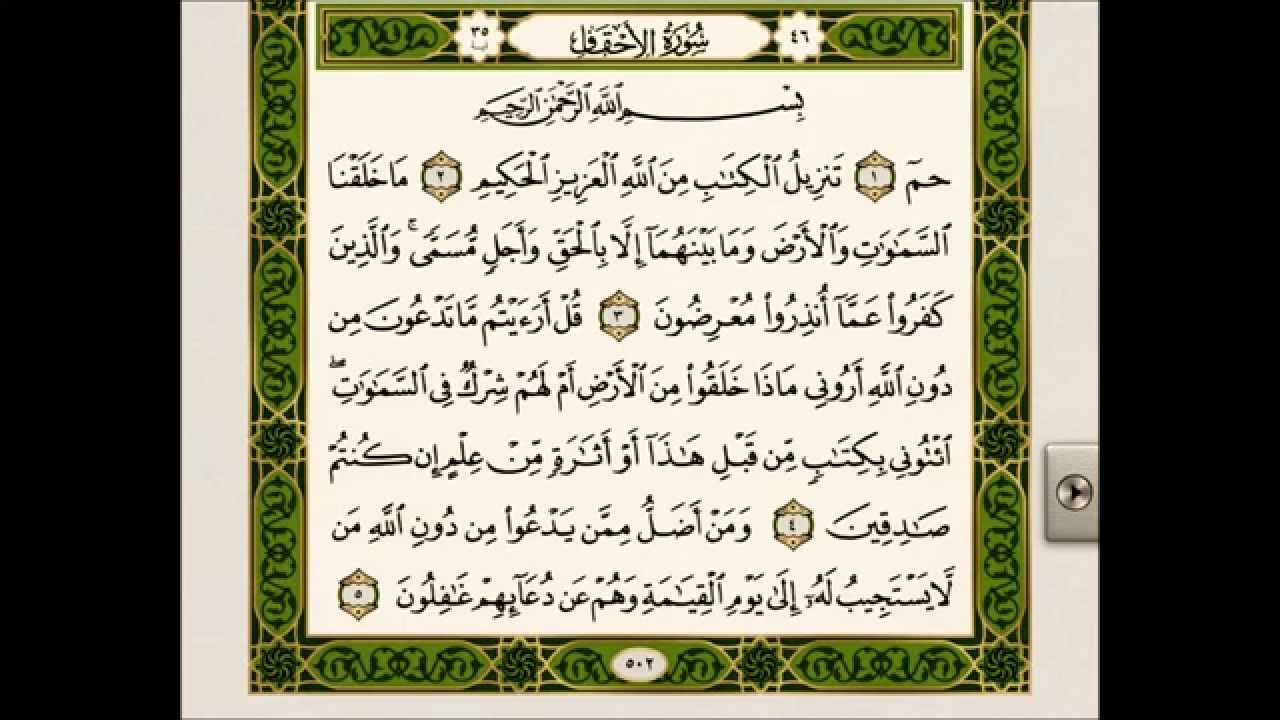 ٤٦ سُورَةُ الأَحْقَافِ ٣٥
بِسْمِ اللَّهِ الرَّحْمَٰنِ الرَّحِيمِ
حمٓ ١ تَنزِيلُ ٱلْكِتَٰبِ مِنَ ٱللَّهِ ٱلْعَزِيزِ ٱلْحَكِيمِ ٢ مَا خَلَقْنَا
ٱلسَّمَٰوَٰتِ وَٱلْأَرْضَ وَمَا بَيْنَهُمَآ إِلَّا بِٱلْحَقِّ وَأَجَلٍ مُّسَمًّى ۚ وَٱلَّذِينَ
كَفَرُوا۟ عَمَّآ أُنذِرُوا۟ مُعْرِضُونَ ٣ قُلْ أَرَءَيْتُم مَّا تَدْعُونَ مِن
دُونِ ٱللَّهِ أَرُونِى مَاذَا خَلَقُوا۟ مِنَ ٱلْأَرْضِ أَمْ لَهُمْ شِرْكٌ فِى ٱلسَّمَٰوَٰتِ ۖ
ٱئْتُونِى بِكِتَٰبٍ مِّن قَبْلِ هَٰذَآ أَوْ أَثَٰرَةٍ مِّنْ عِلْمٍ إِن كُنتُمْ
صَٰدِقِينَ ٤ وَمَنْ أَضَلُّ مِمَّن يَدْعُوا۟ مِن دُونِ ٱللَّهِ مَن
لَّا يَسْتَجِيبُ لَهُۥٓ إِلَىٰ يَوْمِ ٱلْقِيَٰمَةِ وَهُمْ عَن دُعَآئِهِمْ غَٰفِلُونَ ٥
٥٠٢